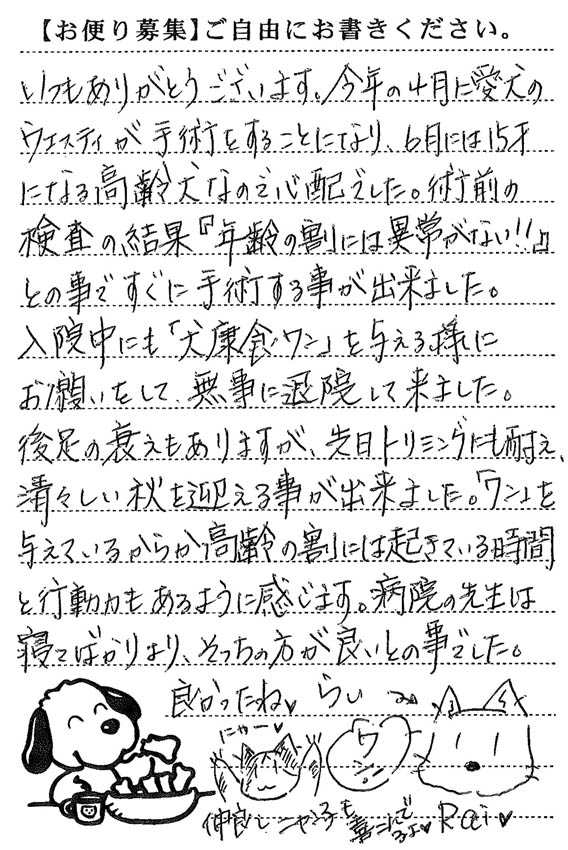 【お便り募集】ご自由にお書きください。
いつもありがとうございます。今年の4月に愛犬の
ウェスティが手術をすることになり、6月には15才
になる高齢犬なので心配でした。術前の
検査の結果『年齢の割には異常がない!!』
との事ですぐに手術する事が出来ました。
入院中にも「犬康食・ワン」を与える様に
お願いをして、無事に退院して来ました。
後足の衰えもありますが、先日トリミングにも耐え、
清々しい秋を迎える事が出来ました。「ワン」を
与えているからか高齢の割には起きている時間
と行動力もあるように感じます。病院の先生は
寝てばかりより、そっちの方が良いとの事でした。
良かったね♥ らい
にゃー♥
ワン
仲良しニャンコも喜こんでるよ♥ Rai♥